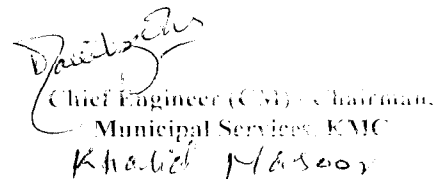 Chief Engineer (CM) / Chairman,
Municipal Services, KMC
Khalid Masoor